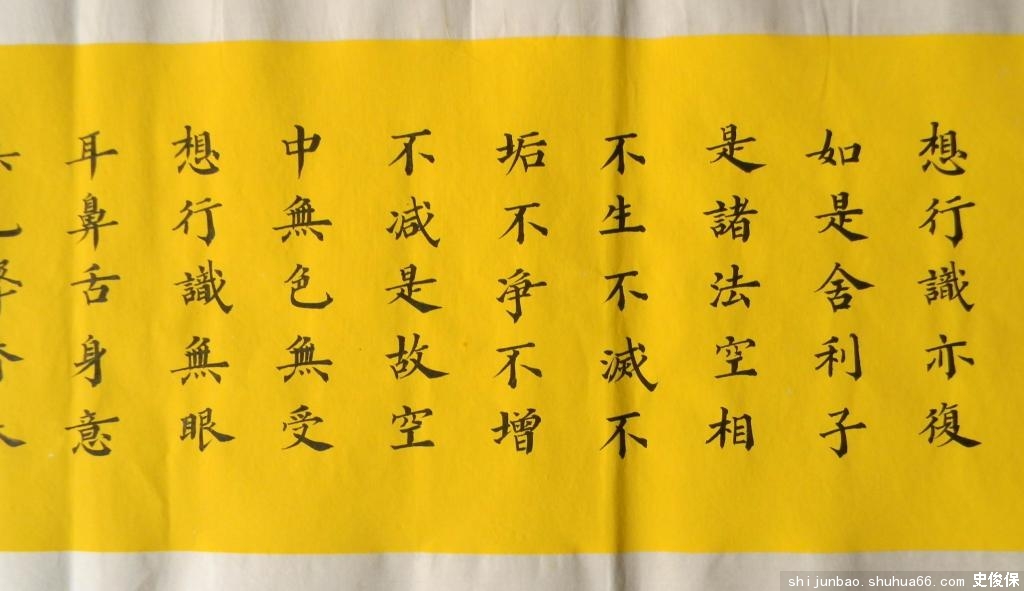 想行識亦復
如是舍利子
是諸法空相
不生不滅不
垢不淨不增
不減是故空
中無色無受
想行識無眼
耳鼻舌身意
shijunbao.shuhua66.com 史俊保